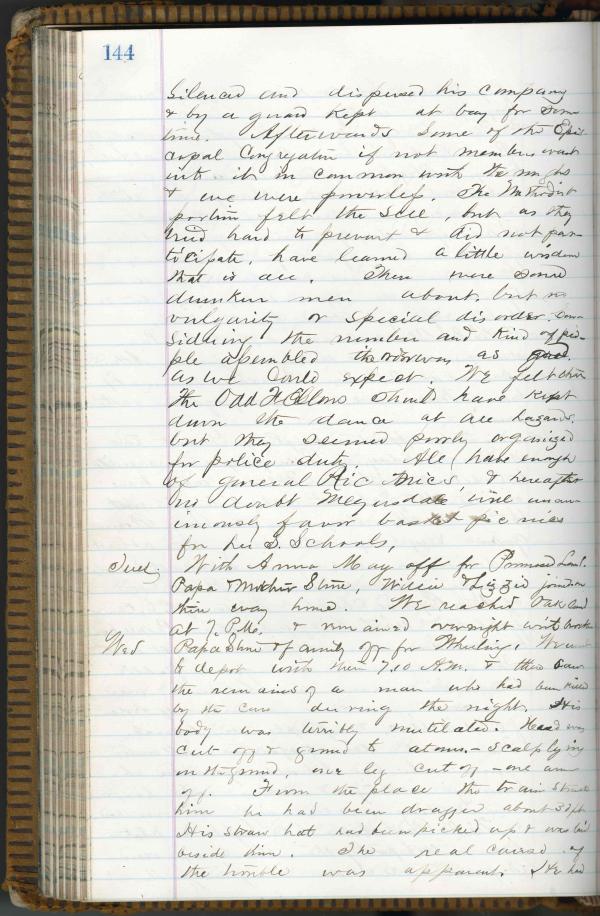 144
Silenced and dispersed his company
& by a guard kept at bay for some
time. Afterwards some of the Epis-
copal Congregation if not members went
into it in common with the
& we were powerless. The Methodist
portion felt the sell, but as they
tried hard to prevent & did not par-
ticipate, have learned a little wisdom
that is all. There were some
drunken men about, but no
vulgarity or special disorder. Con-
sidering the number and kind of peo-
ple assembled there was as good
as we could expect. We felt that
the Odd Fellows should have kept
down the dance at all hazards,
but they seemed poorly organized
for police duty. All have enough
of general Pic Nics, & hereafter
no doubt Meyersdale will unan-
imously favor basket pic nics
for her S. Schools,
Tues. With Anna May off for Promised Land.
Papa & Mother Stine, Willie & Lizzie joined on
their way home. We reached Oakland
at 7. P.M. & remained overnight with
Wed Papa Stine & family off for Wheeling. We went
to depot with them 7.10 A.M. & then saw
the remains of a man who had been killed
by the cars during the night. His
body was terribly mutilated. Head was
cut off & ground to atoms - scalp lying
on the ground, one leg cut off - one arm
off. From the place the train struck
him he had been dragged about
His straw hat had been picked up & was laid
beside him. The real cause of
the trouble was apparent. He had